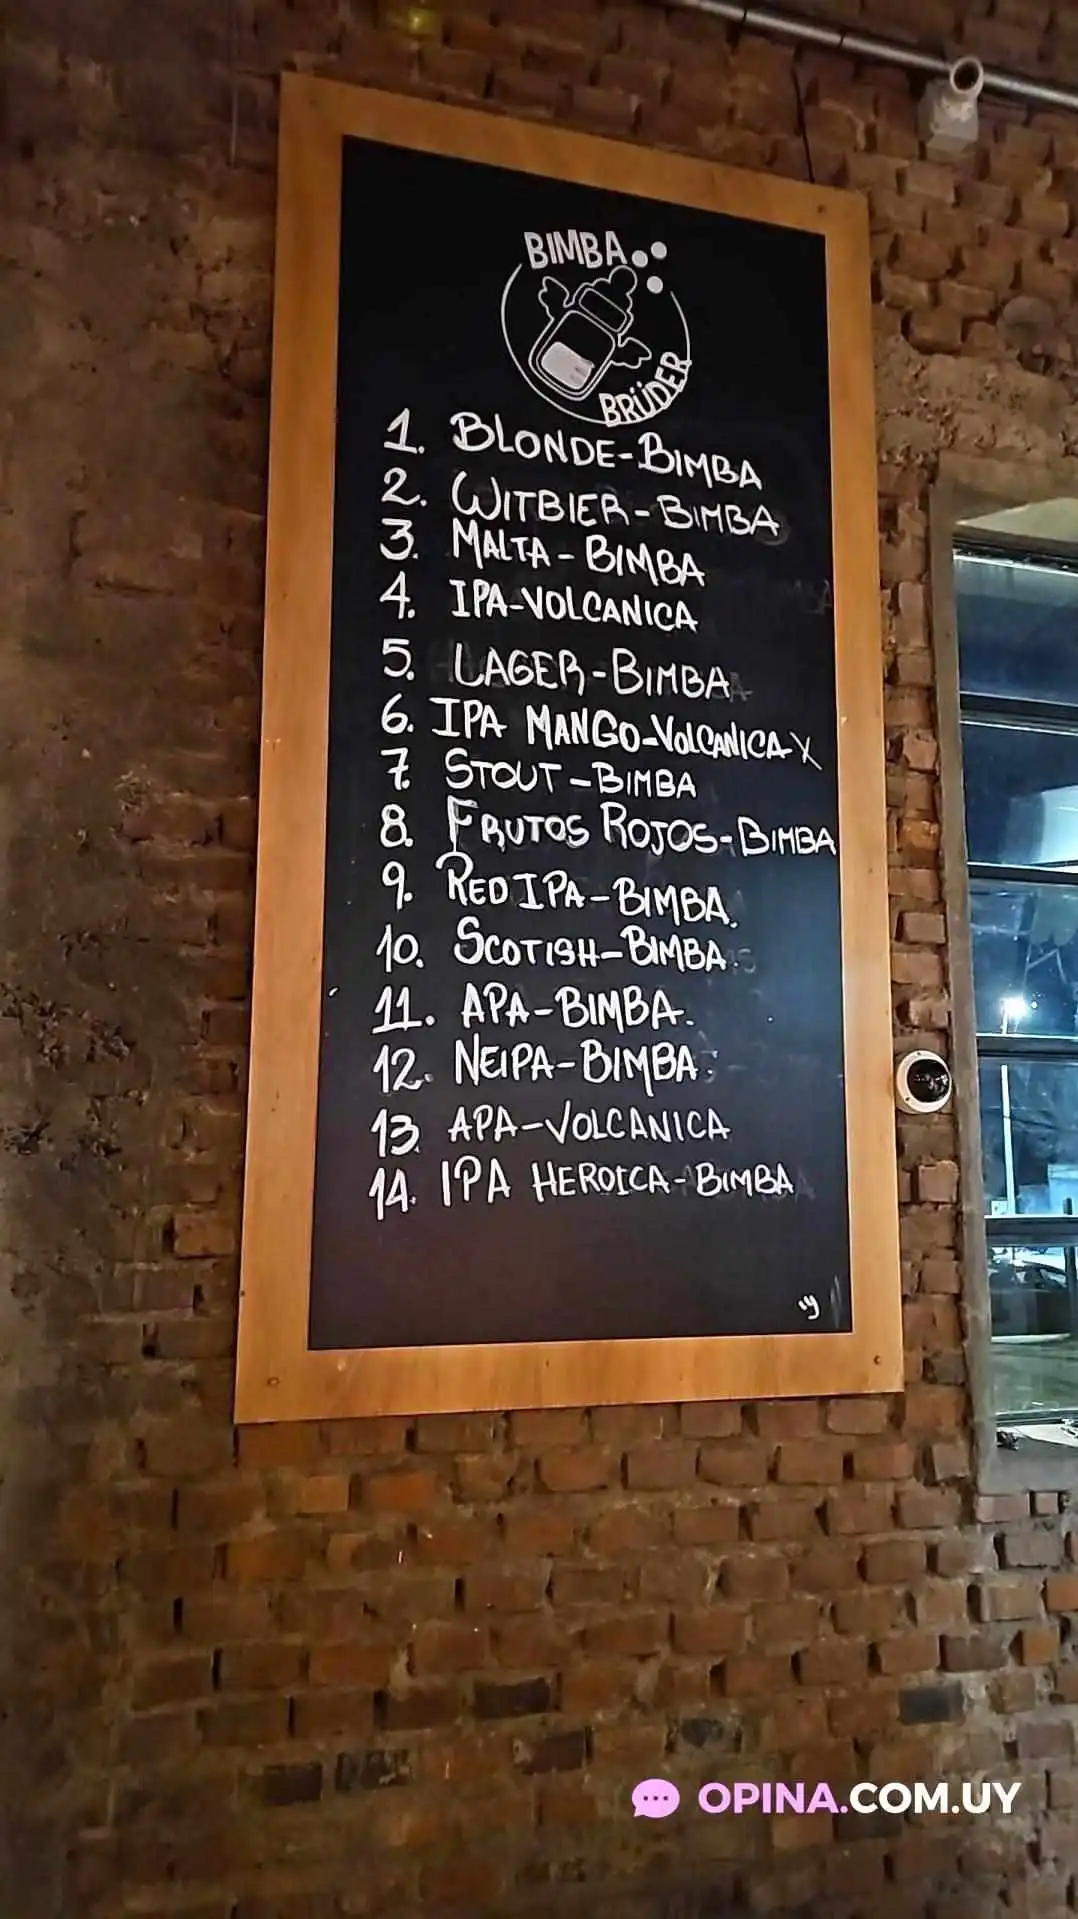 BIMBA
BRÜDER
1. BLONDE-BIMBA
2. WITBIER-BIMBA
3. MALTA-BIMBA
4. IPA-VOLCANICA
5. LAGER-BIMBA
6. IPA MANGO-VOLCANICA X
7. STOUT-BIMBA
8. FRUTOS ROJOS-BIMBA
9. RED IPA-BIMBA.
10. SCOTISH-BIMBA.
11. APA-BIMBA.
12. NEIPA-BIMBA.
13. APA-VOLCANICA
14. IPA HEROICA-BIMBA
OPINA.COM.UY